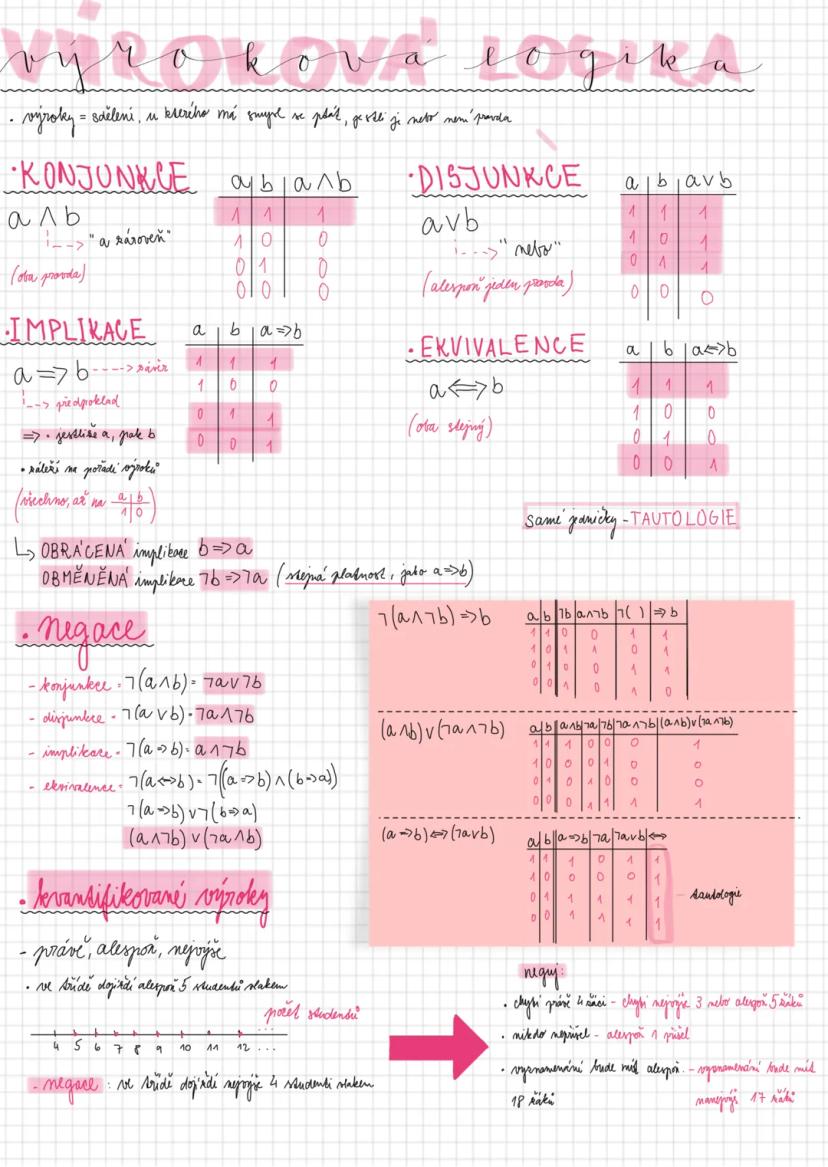 výroková logika
• výroky = sdělení, u kterého má smysl se ptát, jestli je nebo není pravda
• KONJUNKCE
a ∧ b
"a zároveň"
(oba pravda)
a b a∧b
1 1 1
1 0 0
0 1 0
0 0 0
• DISJUNKCE
a∨b
"nebo"
(alespoň jeden pravda)
a b a∨b
1 1 1
1 0 1
0 1 1
0 0 0
• IMPLIKACE
a => b ----> závěr
předpoklad
=> • jestliže a, pak b
• záleží na pořadí výroků
(všechno, až na a b
1 0)
a b a=>b
1 1 1
1 0 0
0 1 1
0 0 1
↳ OBRÁCENÁ implikace b=>a
OBMĚNĚNÁ implikace ¬b=>¬a (stejná platnost, jako a=>b)
• EKVIVALENCE
a <=> b
(oba stejný)
a b a<=>b
1 1 1
1 0 0
0 1 0
0 0 1
samé jedničky - TAUTOLOGIE
• negace
- konjunkce = ¬(a∧b) = ¬a∨¬b
- disjunkce = ¬(a∨b) = ¬a∧¬b
- implikace = ¬(a=>b) = a∧¬b
- ekvivalence = ¬(a<=>b) = ¬((a=>b)∧(b=>a))
¬(a=>b)∨¬(b=>a)
(a∧¬b)∨(¬a∧b)
¬(a∧¬b)=>b
a b ¬b a∧¬b ¬( ) =>b
1 1 0 0 1 1
1 0 1 1 0 1
0 1 0 0 1 1
0 0 1 0 1 0
(a∧b)∨(¬a∧¬b)
a b a∧b ¬a ¬b ¬a∧¬b (a∧b)∨(¬a∧¬b)
1 1 1 0 0 0 1
1 0 0 0 1 0 0
0 1 0 1 0 0 0
0 0 0 1 1 1 1
(a=>b)<=>(¬a∨b)
a b a=>b ¬a ¬a∨b <=>
1 1 1 0 1 1
1 0 0 0 0 1
0 1 1 1 1 1
0 0 1 1 1 1
tautologie
• kvantifikované výroky
- právě, alespoň, nejvýše
• ve třídě dojíždí alespoň 5 studentů vlakem
počet studentů
4 5 6 7 8 9 10 11 12 ...
- negace : ve třídě dojíždí nejvýše 4 studenti vlakem
neguj:
• chybí právě 4 žáci - chybí nejvýše 3 nebo alespoň 5 žáků
• nikdo nepřišel - alespoň 1 přišel
• vyznamenání bude mít alespoň - vyznamenání bude mít
18 žáků nanejvýš 17 žáků